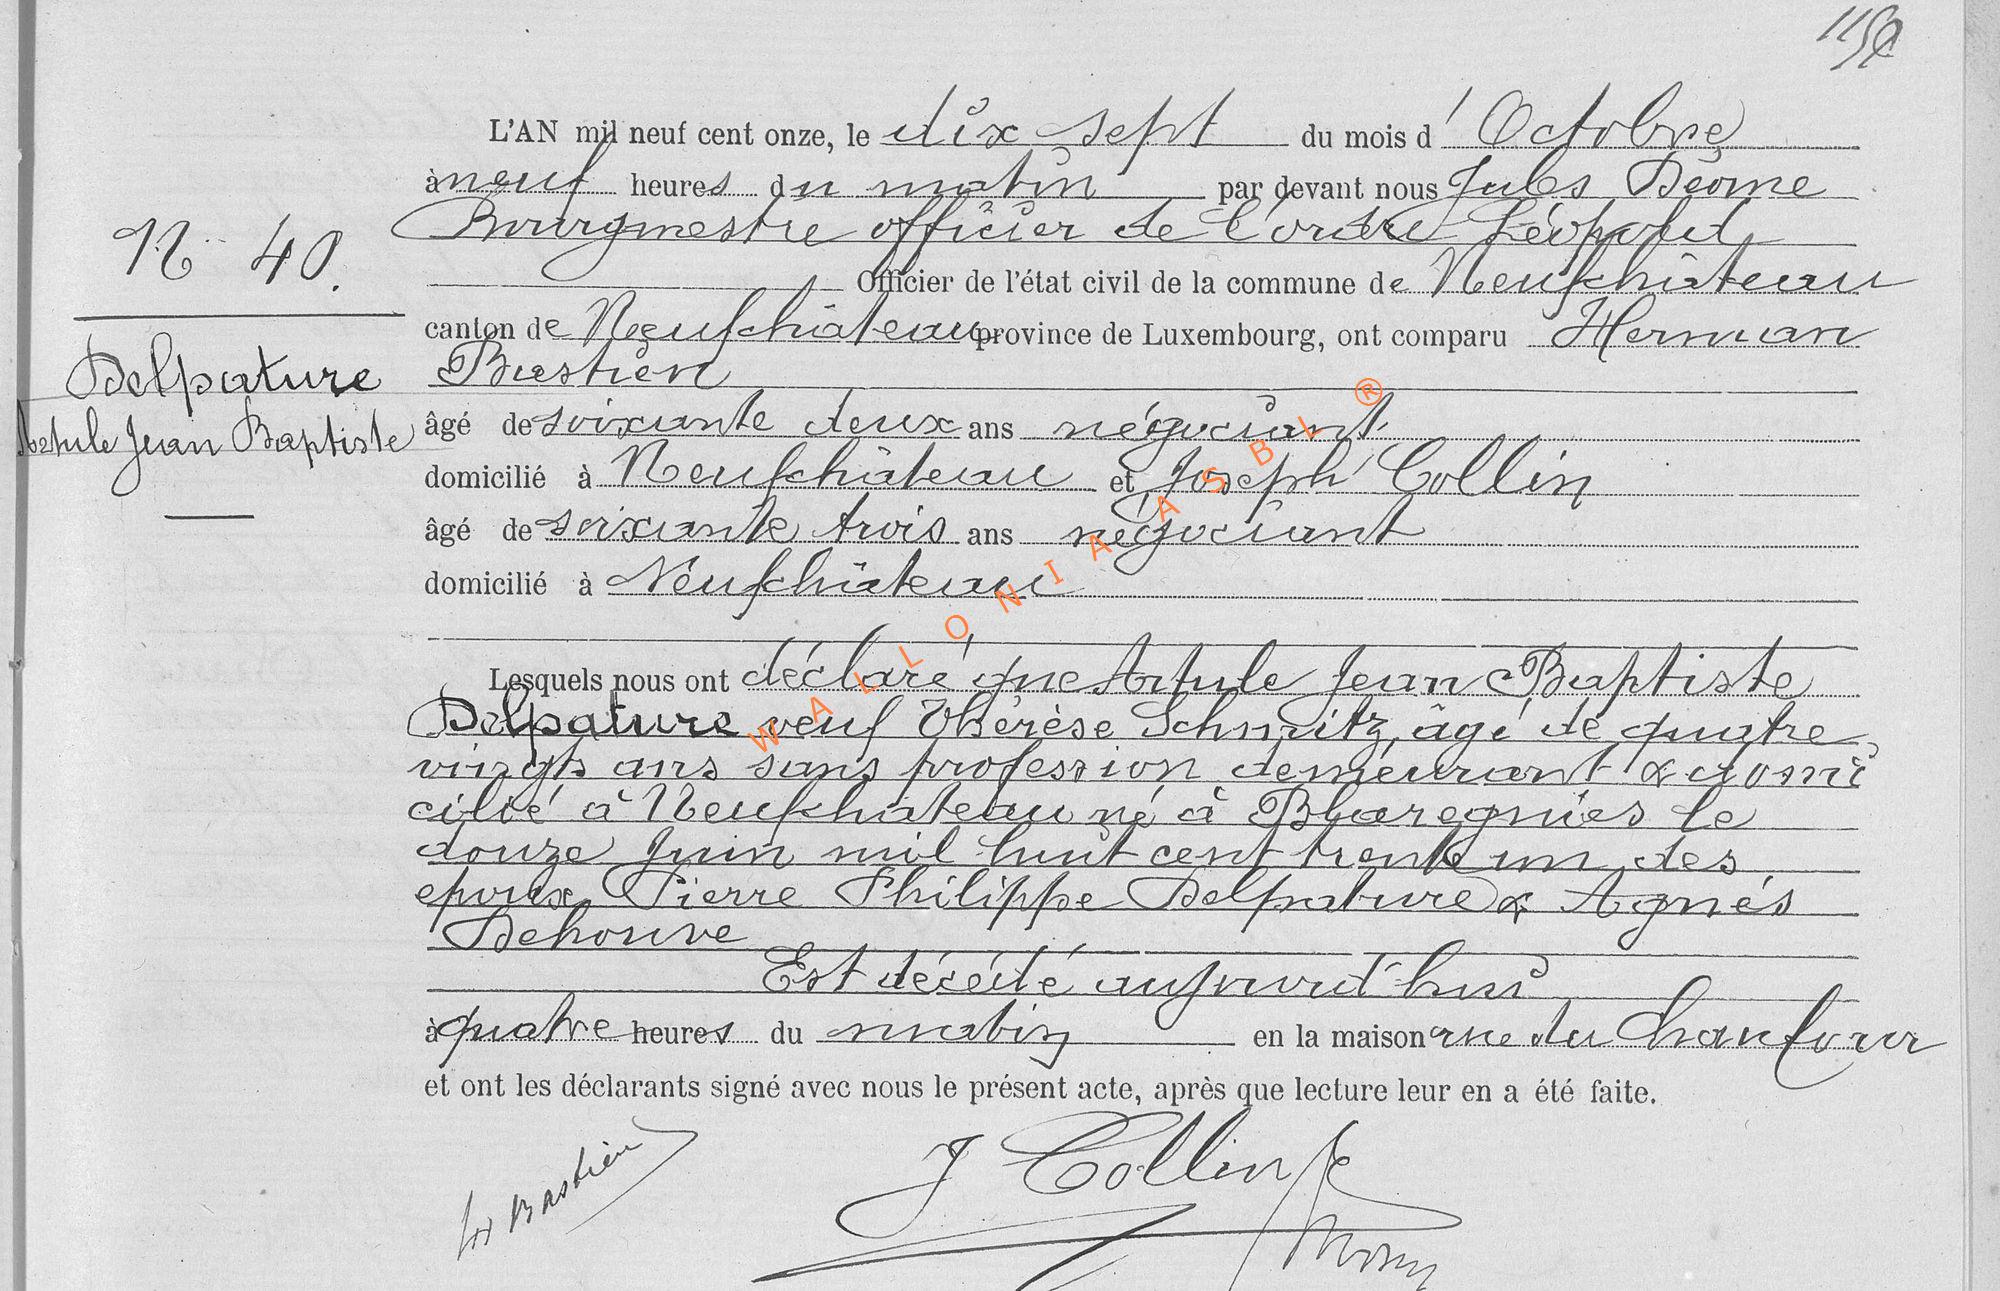 N° 40.
Delpature
Artule Jean Baptiste
L'AN mil neuf cent onze, le dix sept du mois d'Octobre
à neuf heures du matin par devant nous Jules Déome
Bourgmestre officier de l'ordre Léopold
Officier de l'état civil de la commune de Neufchâteau
canton de Neufchâteau province de Luxembourg, ont comparu Herman
Bastien
âgé de soixante deux ans négociant
domicilié à Neufchâteau et Joseph Collin
âgé de soixante trois ans négociant
domicilié à Neufchâteau
Lesquels nous ont déclaré que Artule Jean Baptiste
Delpature veuf Thérèse Schmitz, âgé de quatre
vingts ans sans profession demeurant & domi
cilié à Neufchateau né à Blaregnies le
douze Juin mil huit cent trente un des
epoux Pierre Philippe Delpature & Agnés
Dehouve
Est décédé aujourd'hui
à quatre heures du matin en la maison rue du Chaufour
et ont les déclarants signé avec nous le présent acte, après que lecture leur en a été faite.
Bastien
J Collin
WALLONIA ASBL ®